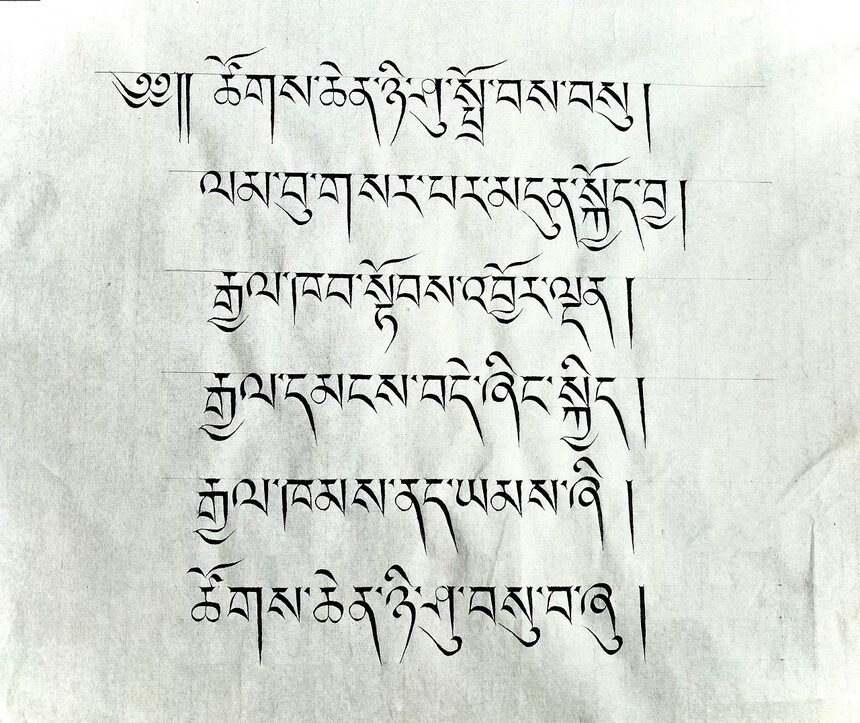 ༄༅།། ཚོགས་ཆེན་ཉི་ཤུ་སྤྲོ་བས་བསུ །
ལམ་བུ་གསར་པར་མདུན་སྐྱོད་བྱ །
རྒྱལ་ཁབ་སྟོབས་འབྱོར་ལྡན །
རྒྱལ་དམངས་བདེ་ཞིང་སྐྱིད །
རྒྱལ་ཁམས་ནད་ཡམས་ཞི །
ཚོགས་ཆེན་ཉི་ཤུ་བསུ་བ་ཞུ །